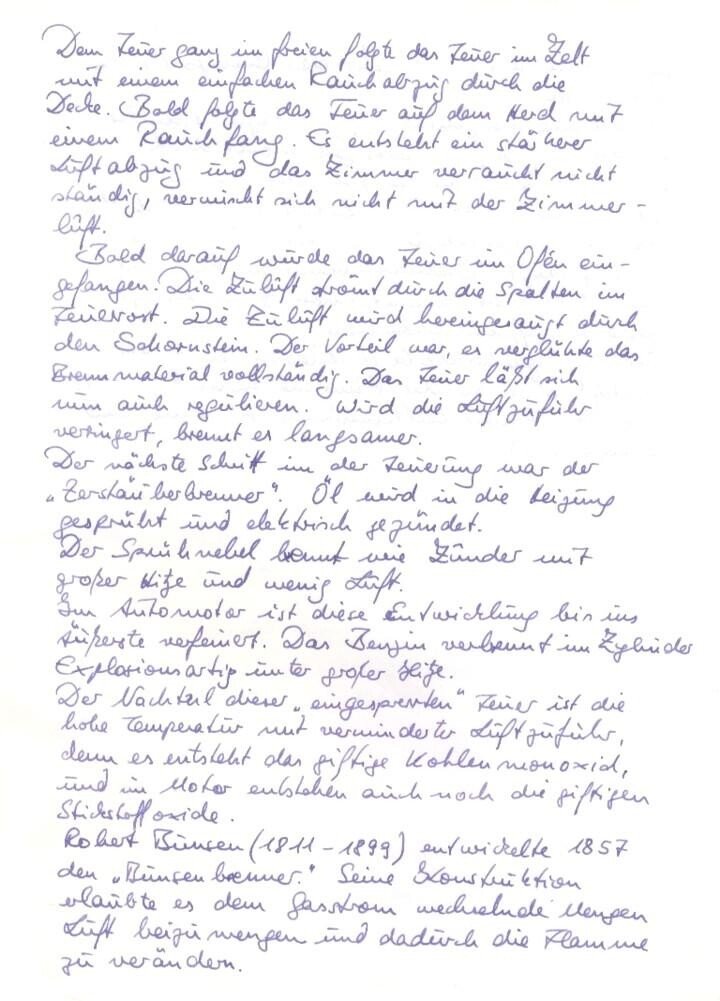 Dem Feuer ganz im freien folgte das Feuer im Zelt
mit einem einfachen Rauchabzug durch die
Decke. Bald folgte das Feuer auf dem Herd mit
einem Rauchfang. Es entsteht ein stärkerer
Luftabzug und das Zimmer verraucht nicht
ständig, vermischt sich nicht mit der Zimmer-
luft.
Bald darauf wurde das Feuer im Ofen ein-
gefangen. Die Zuluft strömt durch die Spalten im
Feuerrost. Die Zuluft wird hereingesaugt durch
den Schornstein. Der Vorteil war, es verglühte das
Brennmaterial vollständig. Das Feuer läßt sich
nun auch regulieren. Wird die Luftzufuhr
verringert, brennt es langsamer.
Der nächste Schritt in der Feuerung war der
„Zerstäuberbrenner". Öl wird in die Heizung
gesprüht und elektrisch gezündet.
Der Sprühnebel brennt wie Zunder mit
großer Hitze und wenig Luft.
Im Automotor ist diese Entwicklung bis ins
äußerste verfeinert. Das Benzin verbrennt im Zylinder
Explosionsartig unter großer Hitze.
Der Nachteil dieser „eingesperrten" Feuer ist die
hohe Temperatur mit verminderter Luftzufuhr,
denn es entsteht das giftige Kohlenmonoxid,
und im Motor entstehen auch noch die giftigen
Stickstoffoxide.
Robert Bunsen (1811 – 1899) entwickelte 1857
den „Bunsenbrenner." Seine Konstruktion
erlaubte es dem Gasstrom wechselnde Mengen
Luft beizumengen und dadurch die Flamme
zu verändern.